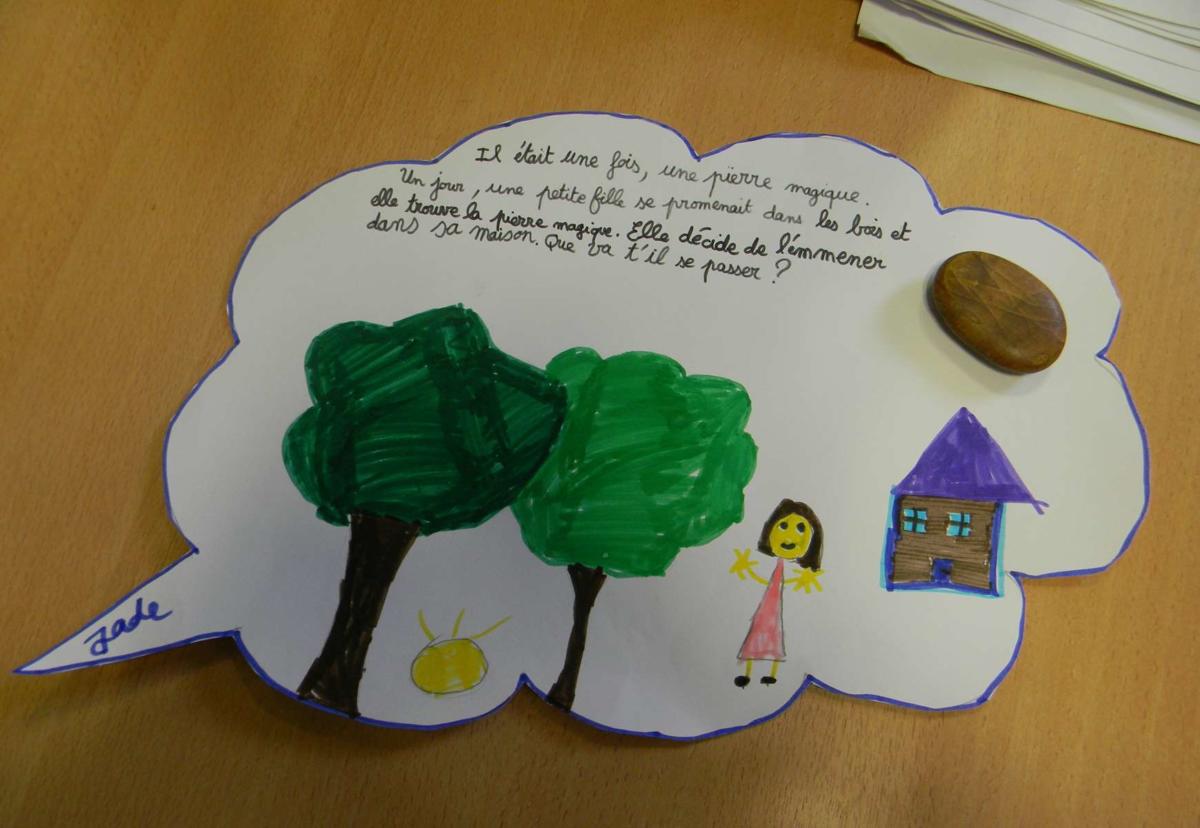 Il était une fois, une pierre magique.
Un jour, une petite fille se promenait dans les bois et
elle trouve la pierre magique. Elle décide de l'emmener
dans sa maison. Que va t'il se passer ?
Jade